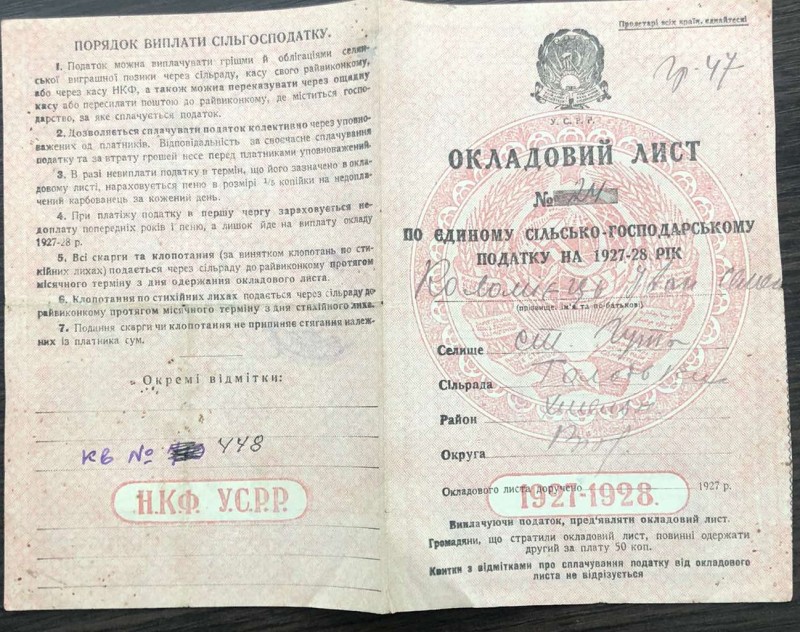 ПОРЯДОК ВИПЛАТИ СІЛЬГОСПОДАТКУ.
1. Податок можна виплачувати грішми й облігаціями селян-
ської виграшної позики через сільраду, касу свого райвиконкому,
або через касу НКФ, а також можна переказувати через ощадну
касу або пересилати поштою до райвиконкому, де міститься госпо-
дарство, за яке сплачується податок.
2. Дозволяється сплачувати податок колективно через уповно-
важених од платників. Відповідальність за своєчасне сплачування
податку та за втрату грошей несе перед платниками уповноважений.
3. В разі невиплати податку в термін, що його зазначено в окла-
довому листі, нараховується пеню в розмірі копійки на недопла-
чений карбованець за кожений день.
4. При платіжу податку в першу чергу зараховується не-
доплату попередніх років і пеню, а лишок йде на виплату окладу
1927-28 р.
5. Всі скарги та клопотання (за винятком клопотань по сти-
хійних лихах) подається через сільраду до райвиконкому протягом
місячного терміну з дня одержання окладового листа.
6. Клопотання по стихійних лихах подається через сільраду до
райвиконкому протягом місячного терміну з дня стихійного лиха.
7. Подання скарги чи клопотання не припиняє стягання належ-
них із платника сум.
Окремі відмітки:
кв № 448
Н.К.Ф. У.С.Р.Р.
Пролетарі всіх країн, єднайтеся!
гр. 47
У.С.Р.Р.
ОКЛАДОВИЙ ЛИСТ
№ 24
ПО ЄДИНОМУ СІЛЬСЬКО-ГОСПОДАРСЬКОМУ
ПОДАТКУ НА 1927-28 РІК
(прізвище, ім'я та по-батькові)
Селище ст.
Сільрада
Район
Округа
Окладового листа доручено 1927 р.
1927-1928.
Виплачуючи податок, пред'являти окладовий лист.
Громадяни, що стратили окладовий лист, повинні одержати
другий за плату 50 коп.
Квитки з відмітками про сплачування податку від окладового
листа не відрізується